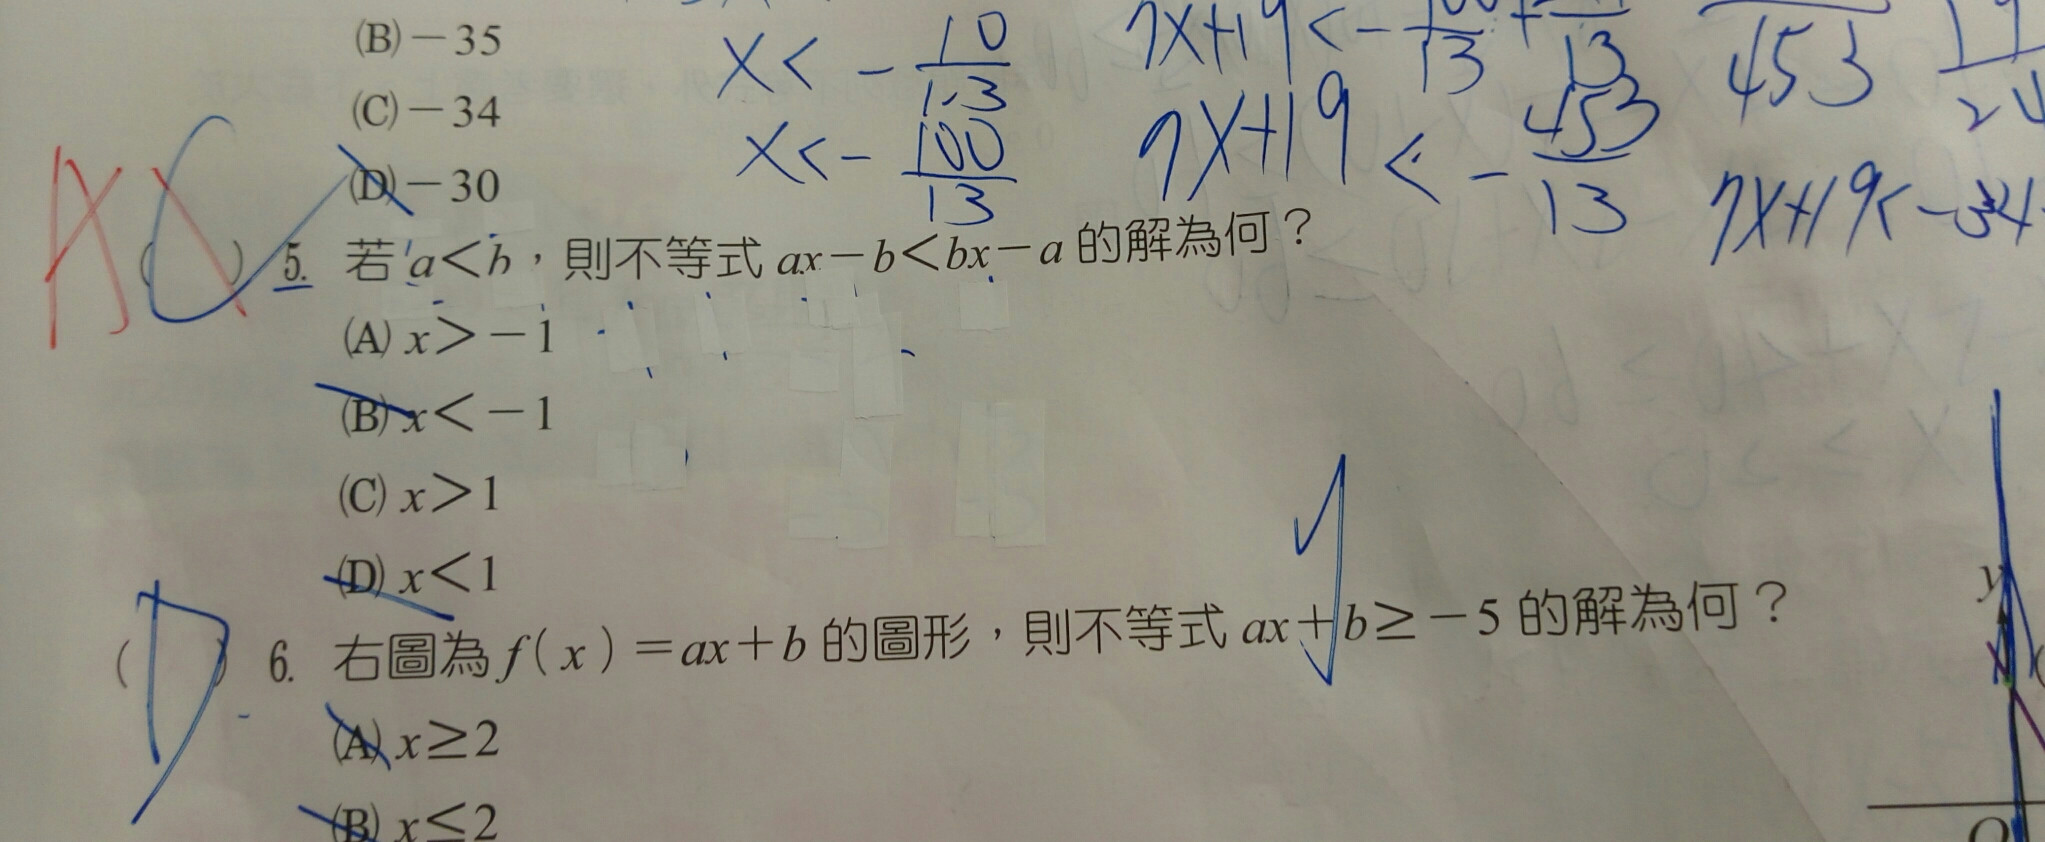 (B)－35
x < - 10/13
7x+19 <
(C)－34
453
x < - 100/13
7x+19 < - 453/13
(D)－30
7x+19 < -34
A C
( ) 5. 若 a＜b，則不等式 ax－b＜bx－a 的解為何？
(A) x＞－1
(B) x＜－1
(C) x＞1
(D) x＜1
( D ) 6. 右圖為 f( x )＝ax＋b 的圖形，則不等式 ax＋b≥－5 的解為何？
y
(A) x≥2
(B) x≤2
O